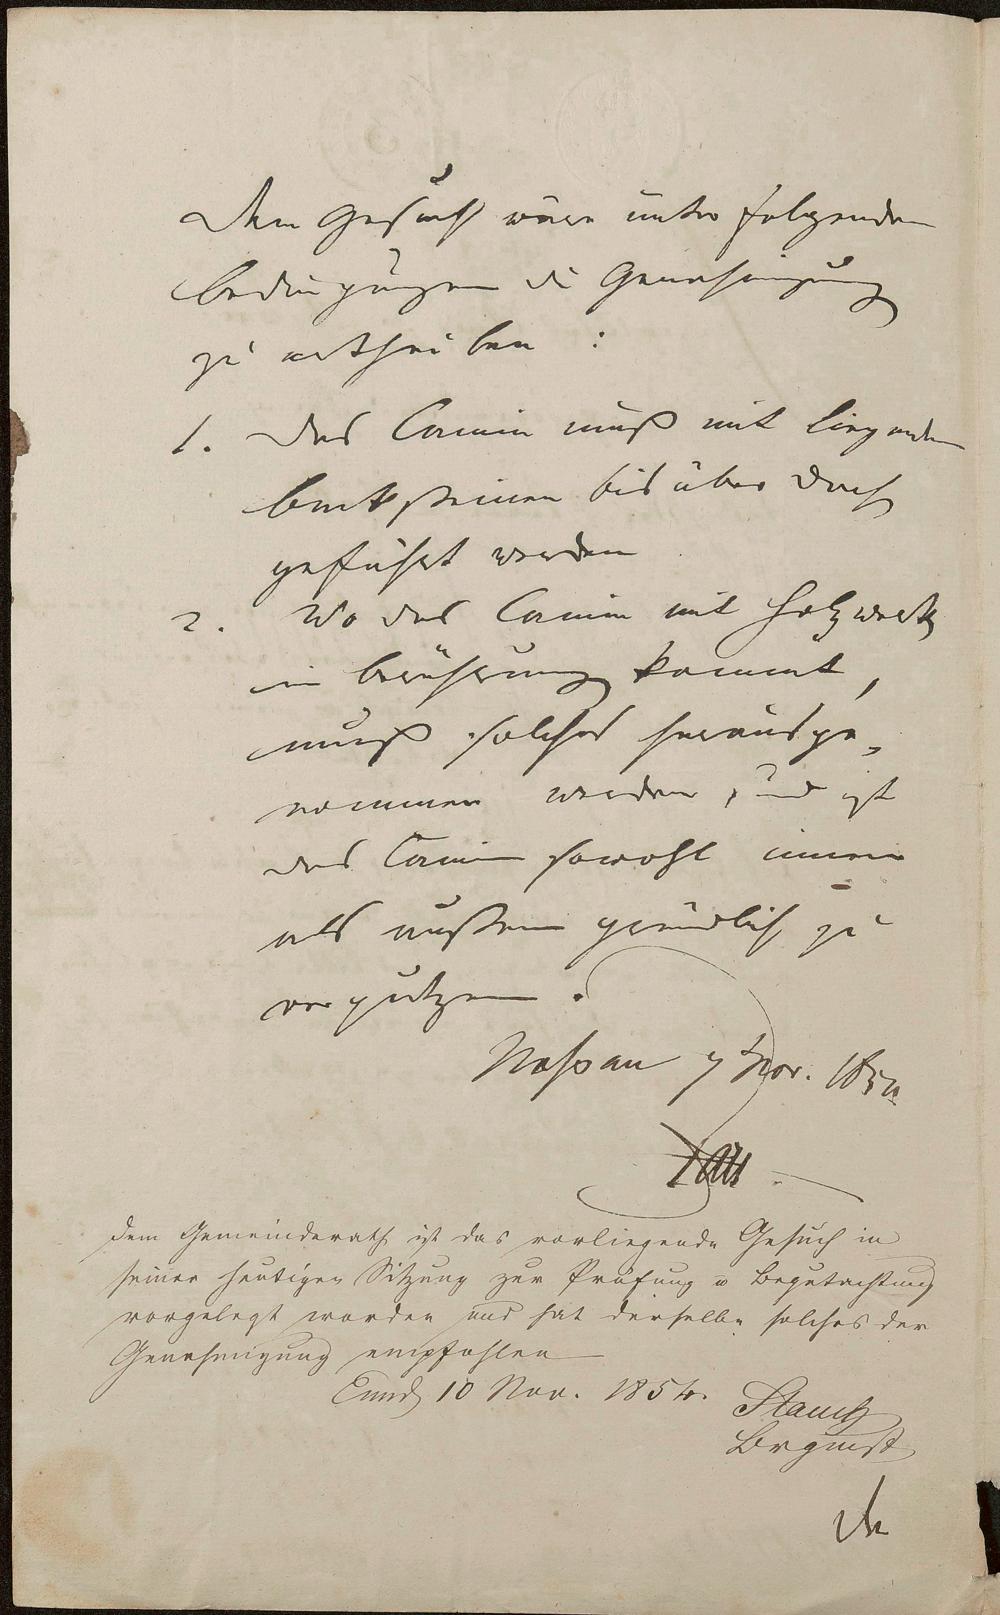 Dem Gesuch wäre unter folgenden
bedingungen die Genehmigung
zu ertheilen :
1. Das Camin muß mit liegenden
backsteinen bis über Dach
geführt werden
2. Wo das Camin mit Holzwerk
in berührung kommt,
muß solches herausge-
nommen werden, und ist
das Camin sowohl innen
als außen gründlich zu
verputzen.
Nassau 7 Nov. 1854
Dem Gemeinderath ist das vorliegende Gesuch in
seiner heutigen Sitzung zur Prüfung u Begutachtung
vorgelegt worden und hat derselbe solches der
Genehmigung empfohlen
10 Nov. 1854.
Brgmst